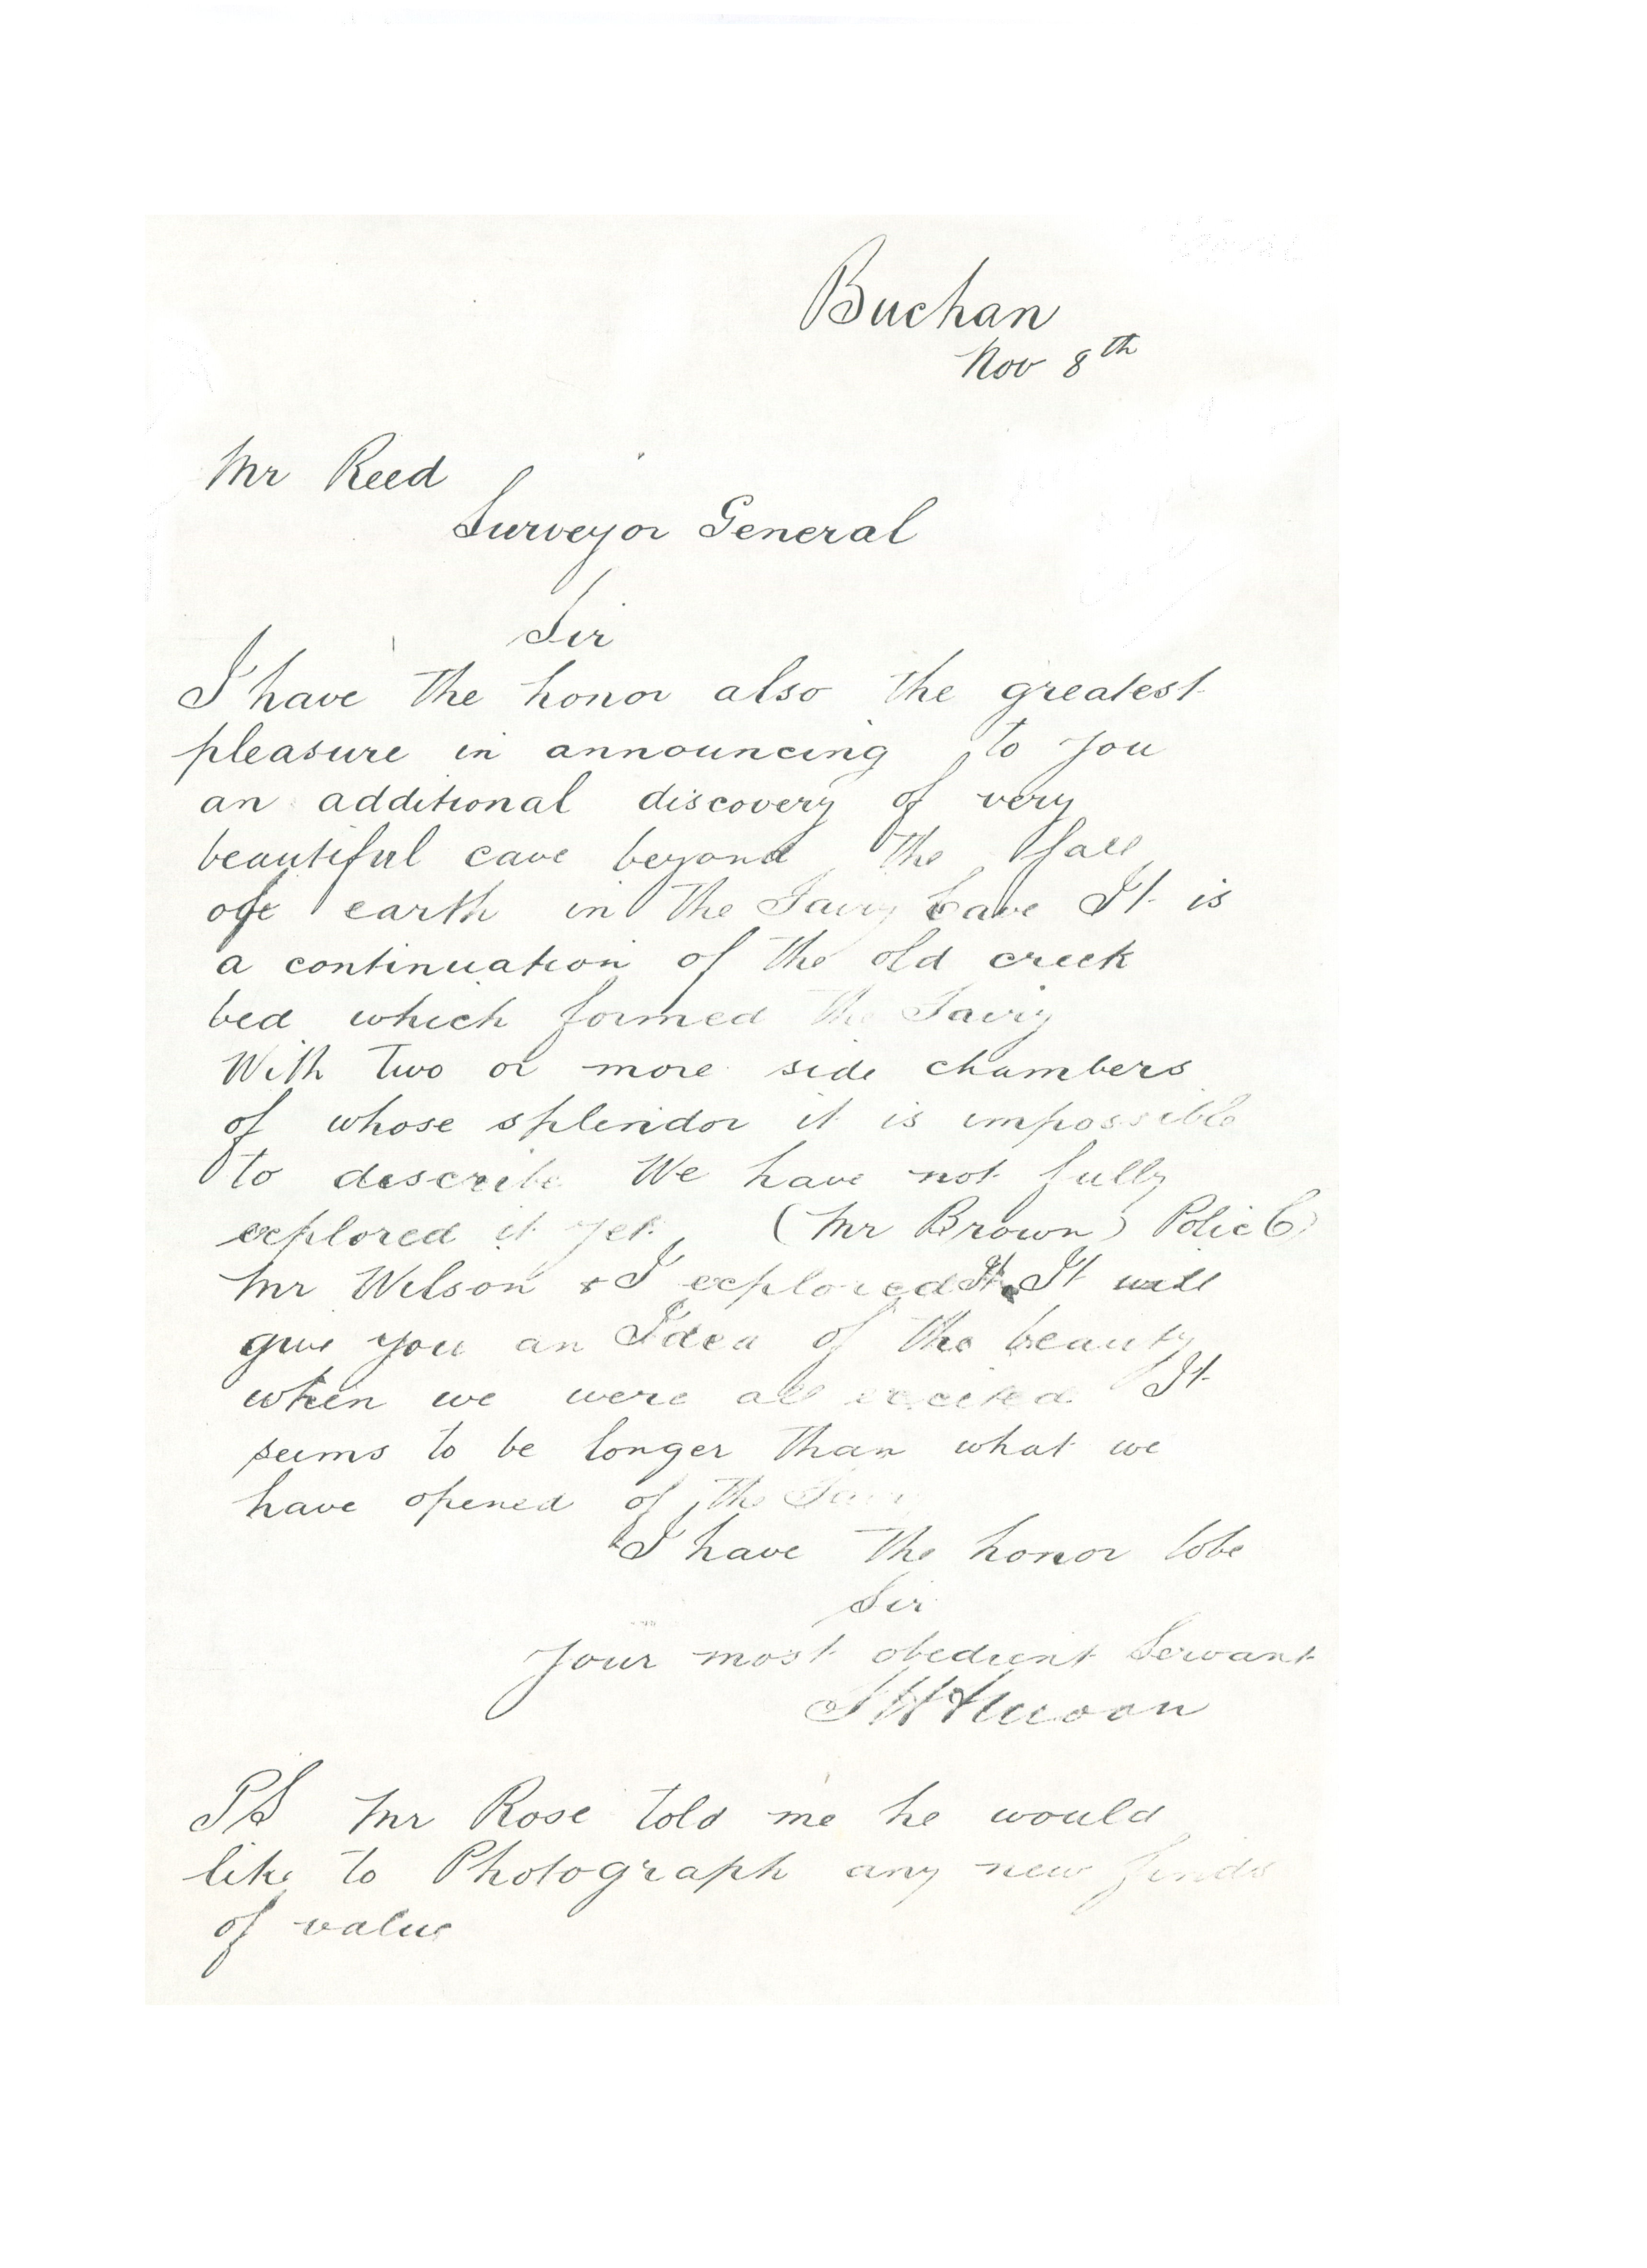 Buchan
Nov 8th
Mr Reed
Surveyor General
Sir
I have the honor also the greatest
pleasure in announcing to you
an additional discovery of very
beautiful cave beyond the fall
of earth in the Fairy Cave It is
a continuation of the old creek
bed which formed the Fairy
With two or more side chambers
of whose splendor it is impossible
to describe We have not fully
explored it yet (Mr Brown) Polic C)
Mr Wilson & I explored It. It will
give you an Idea of the beauty
when we were all excited It
seems to be longer than what we
have opened of the Fairy
I have the honor tobe
Sir
Your most obedient Servant
PS Mr Rose told me he would
like to Photograph any new finds
of value